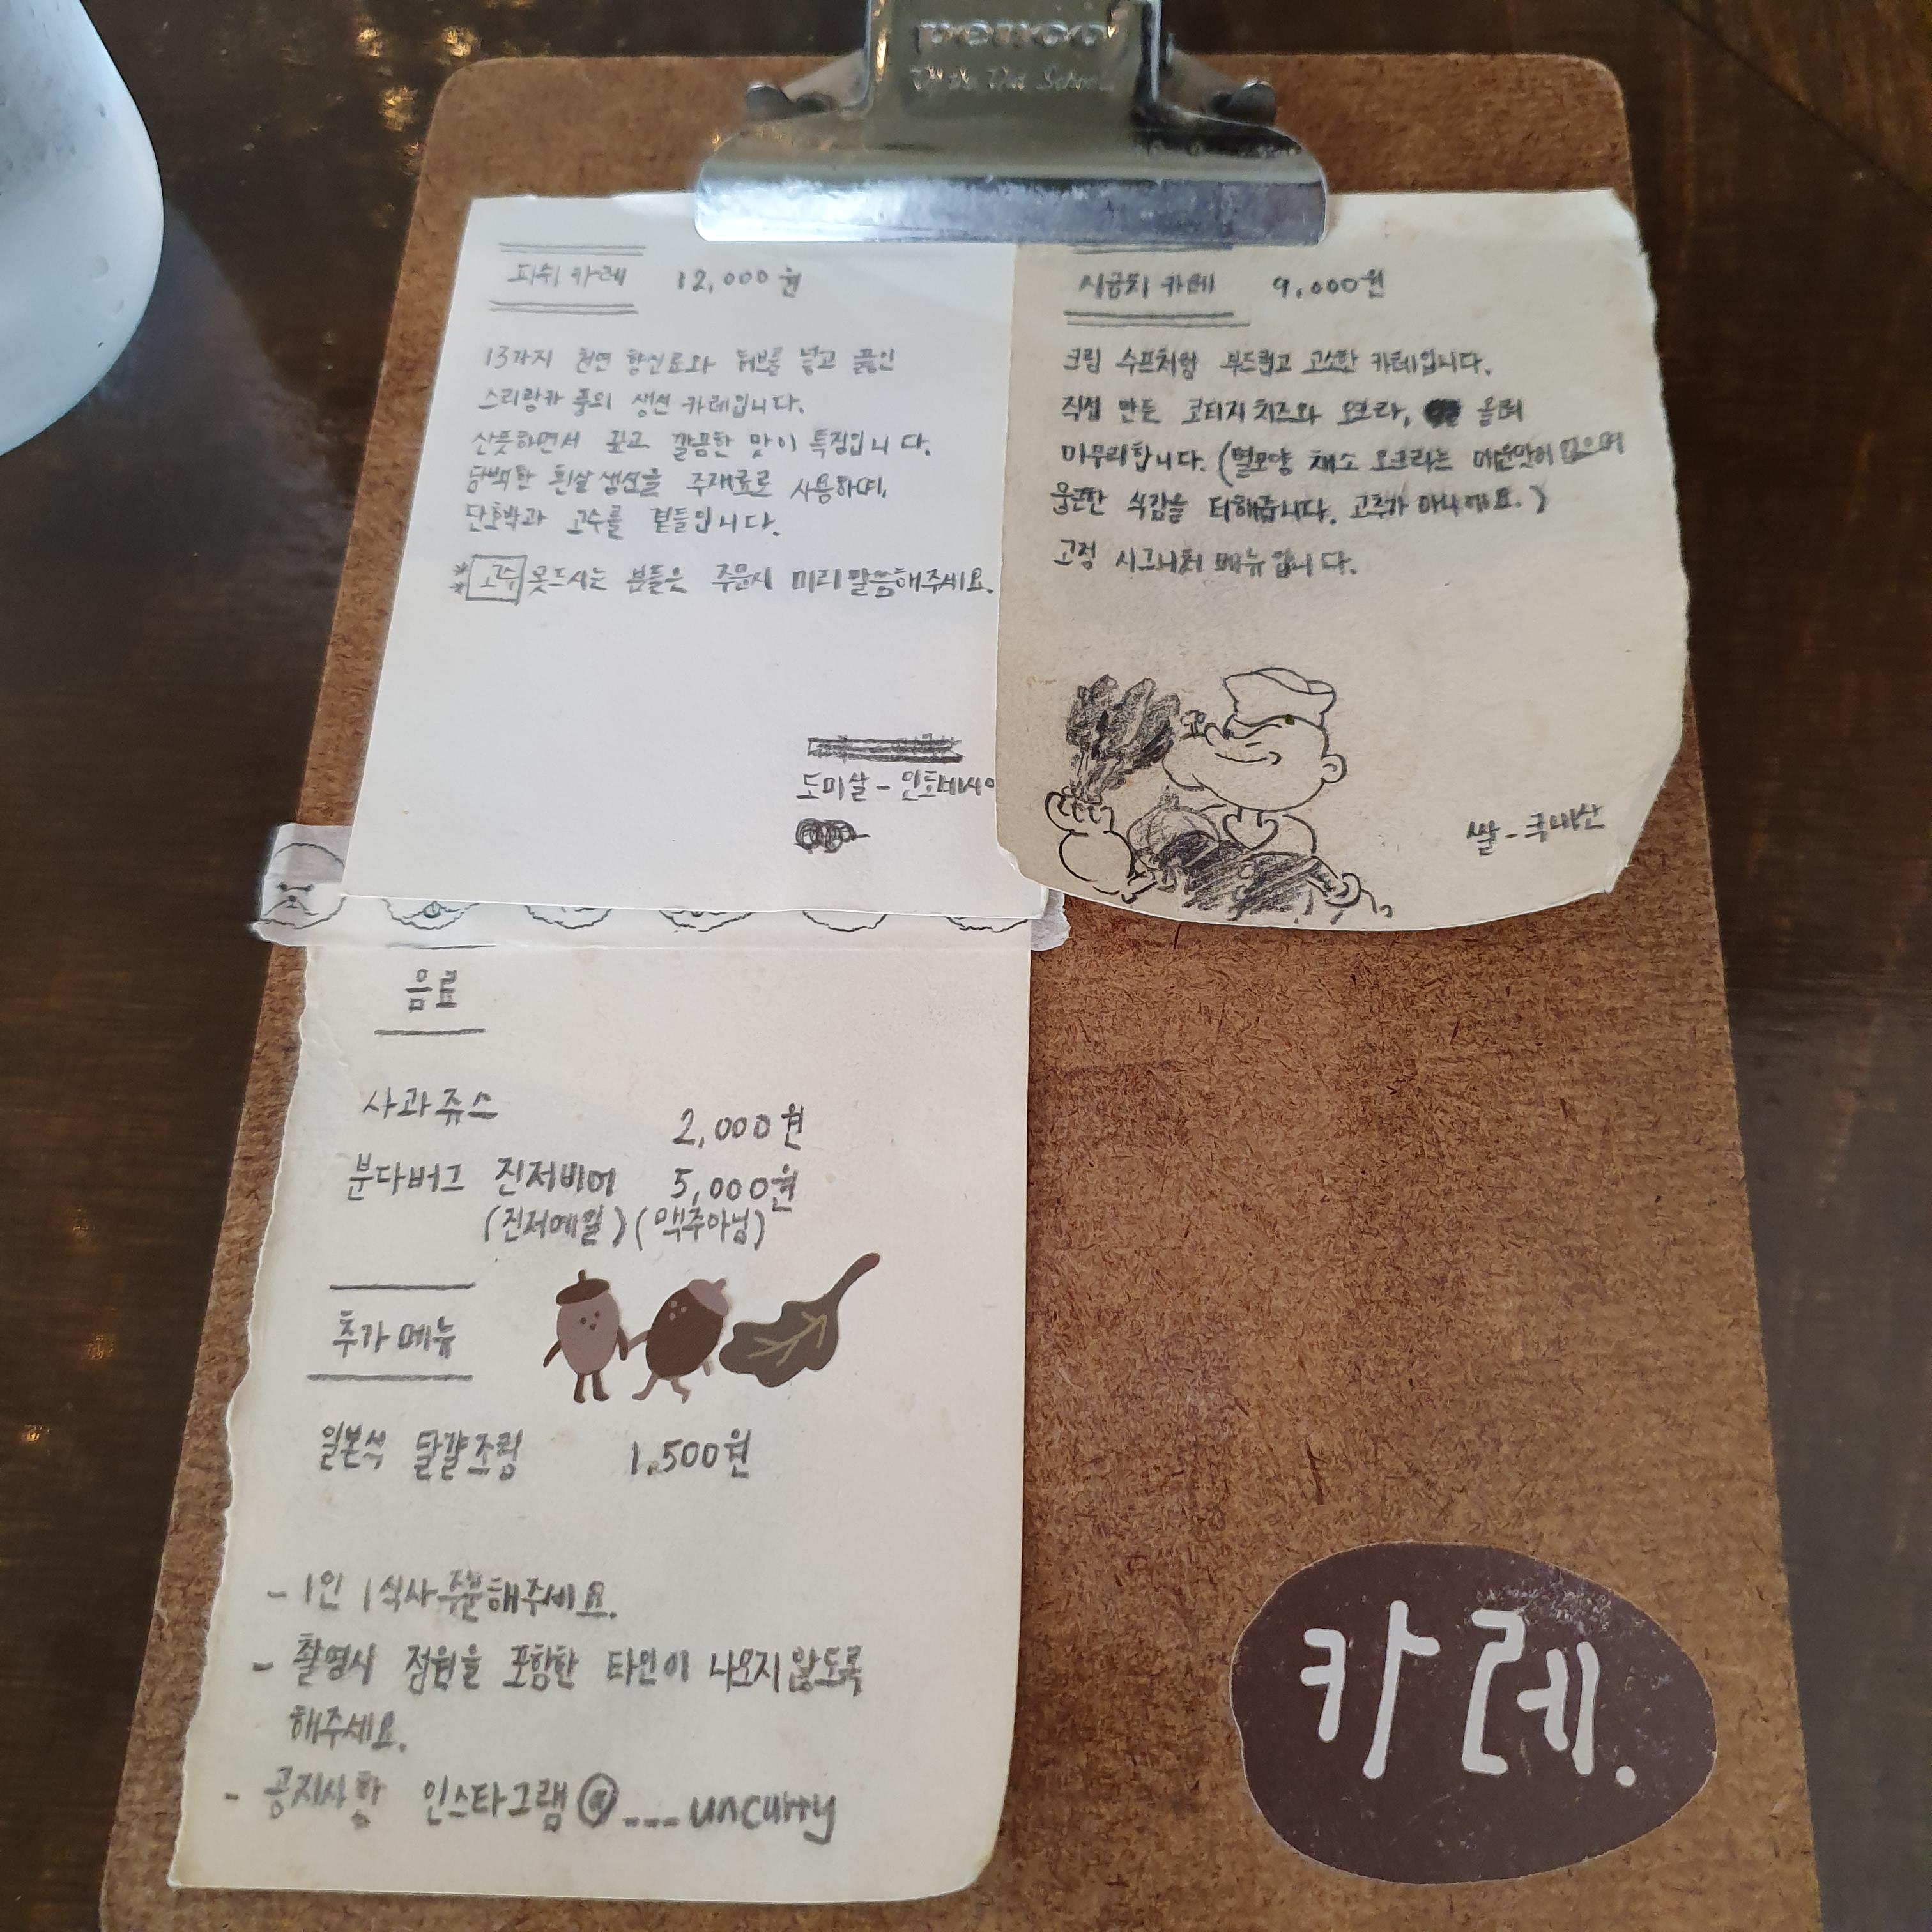 penco
피쉬 카레 12,000원
13가지 천연 향신료와 허브를 넣고 끓인
스리랑카 풍의 생선 카레입니다.
산뜻하면서 깊고 깔끔한 맛이 특징입니다.
담백한 흰살생선을 주재료로 사용하며,
단호박과 고수를 곁들입니다.
고수 못드시는 분들은 주문시 미리 말씀해주세요.
도미살 - 인도네시아
시금치 카레 9,000원
크림 수프처럼 부드럽고 고소한 카레입니다.
직접 만든 코티지 치즈와 오크라, 올려
마무리합니다. (별모양 채소 오크라는 매운맛이 없으며
뭉근한 식감을 더해줍니다. 고추가 아니에요.)
고정 시그니처 메뉴입니다.
쌀 - 국내산
음료
사과쥬스 2,000원
분다버그 진저비어 5,000원
(진저에일) (맥주아님)
추가 메뉴
일본식 달걀조림 1,500원
- 1인 1식사 주문해주세요.
- 촬영시 점원을 포함한 타인이 나오지 않도록
해주세요.
- 공지사항 인스타그램 @___uncurry
카레.